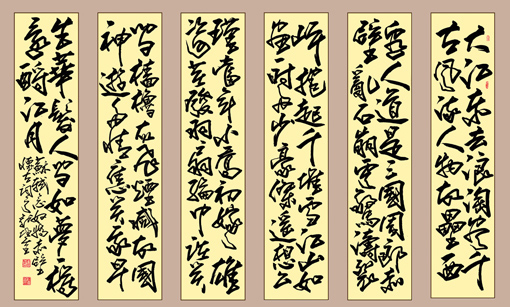 大江东去浪淘尽千
古風流人物故壘西
邊人道是三國周郎赤
壁亂石崩雲驚濤裂
岸捲起千堆雪江山如
畫一時多少豪傑遙想公
瑾當年小喬初嫁了雄
姿英發羽扇綸巾談笑
間檣櫓灰飛煙滅故國
神遊多情應笑我早
生華髮人間如夢一樽
還酹江月
蘇軾念奴嬌赤壁
懷古詞